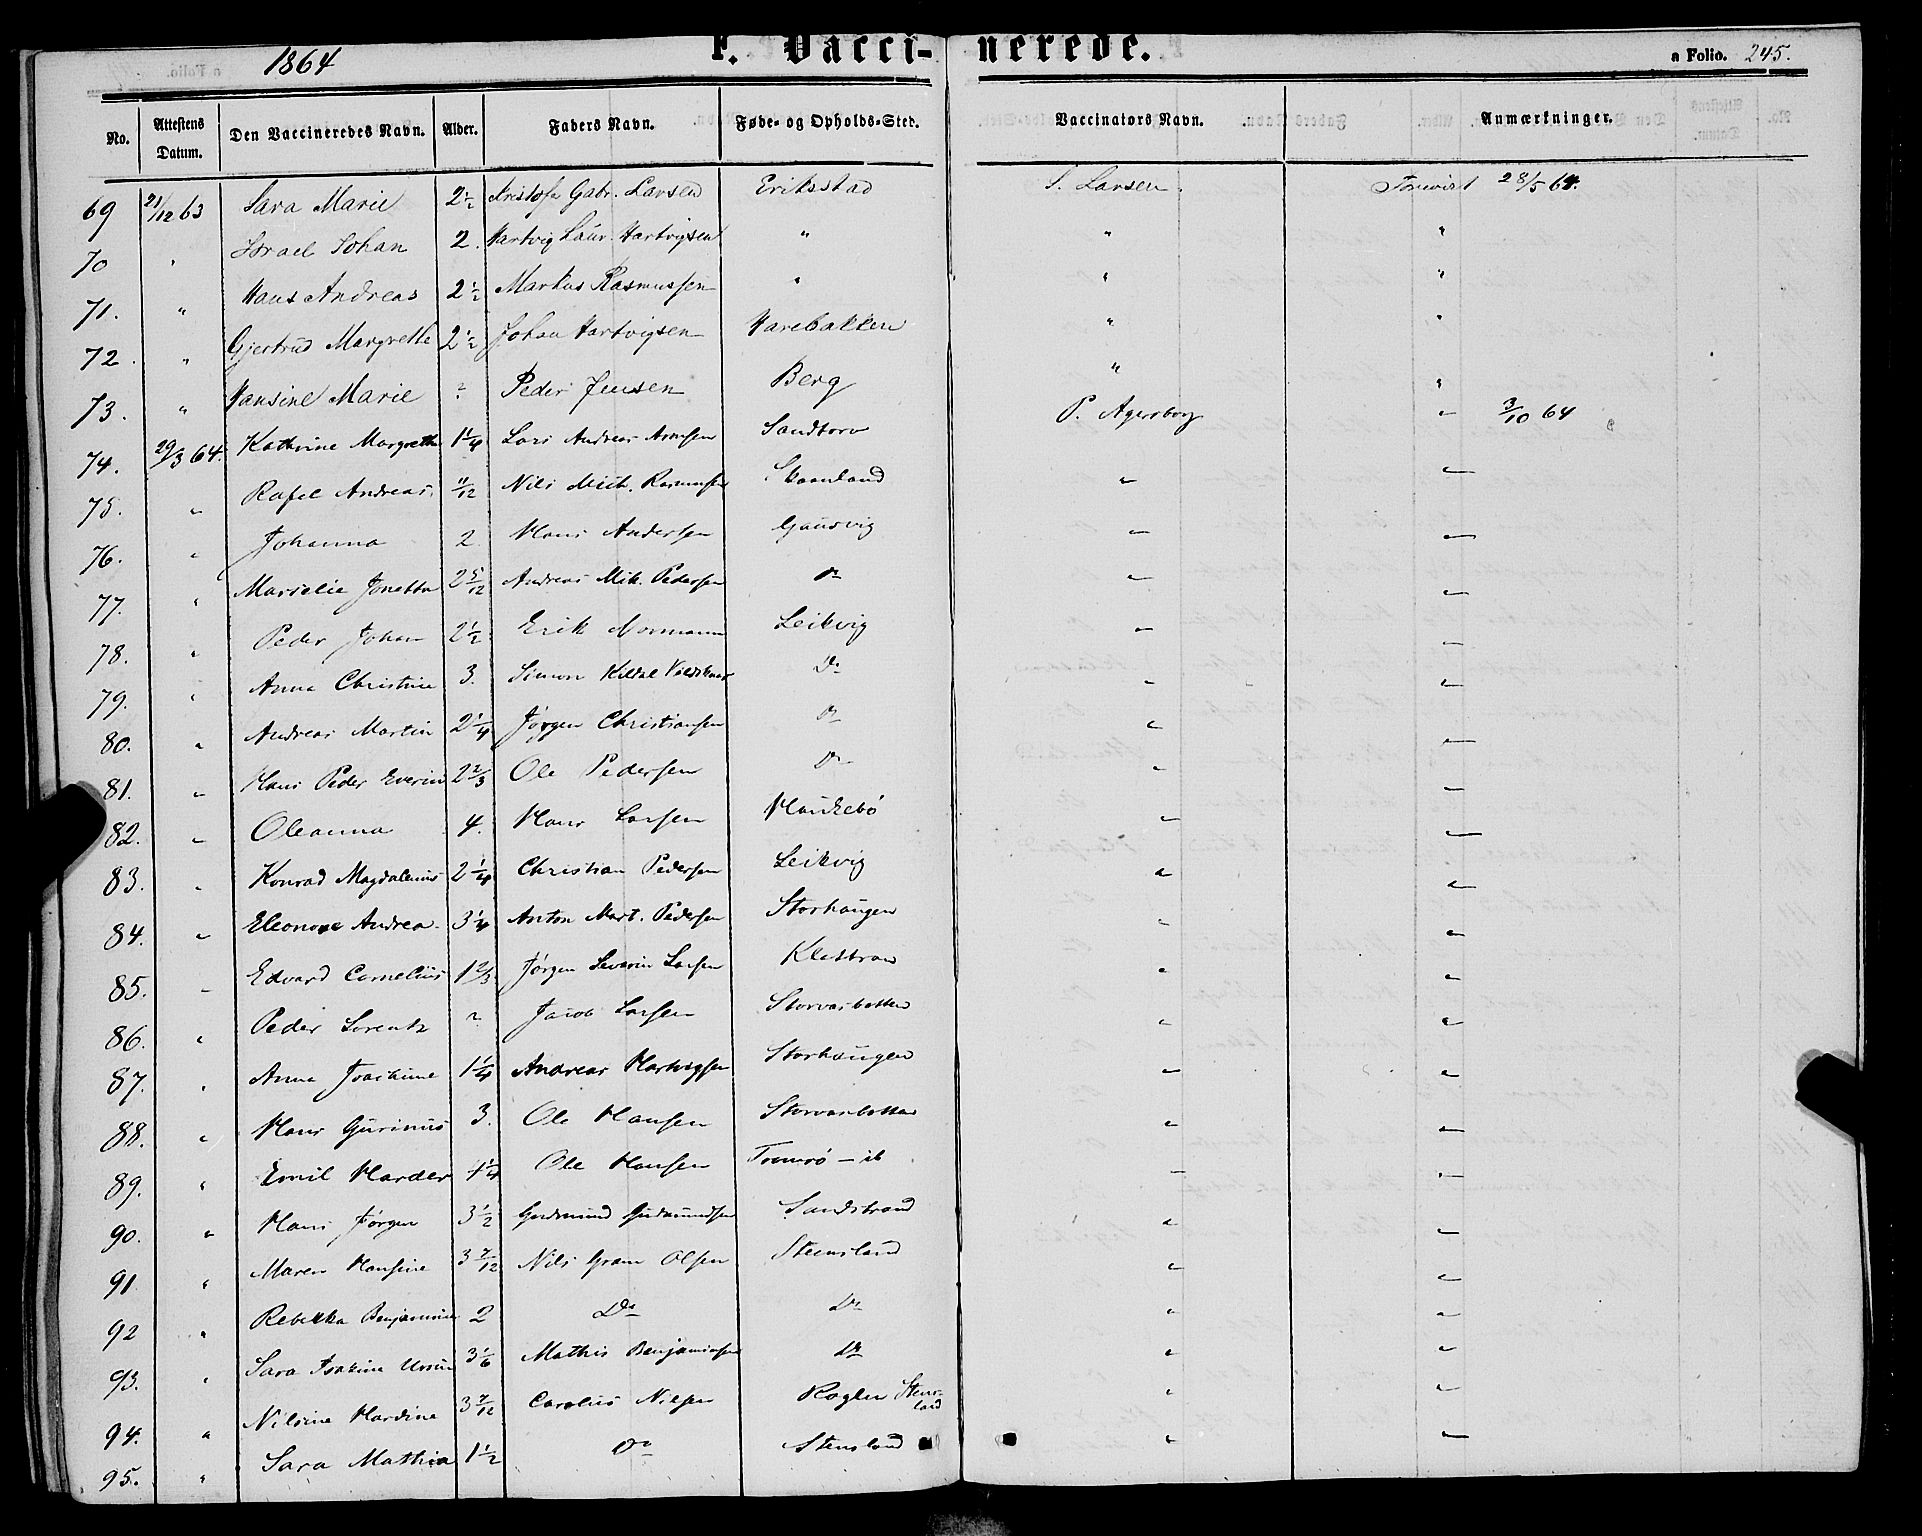 1864
F. Vaccinerede.
a Folio. 245.
No. Attestens Datum. Den Vaccineredes Navn. Alder. Faders Navn. Føde- og Opholds-Sted. Vaccinators Navn. Anmærkninger.
69 21/12 63 Sara Marie 2 1/2 Kristofer Gabr. Larsen Eriksstad S. Larsen. Forevist 28/5 64.
70 " Israel Johan 2. Hartvig Laur. Hartvigsen " " "
71. " Hans Andreas 2 1/2 Markus Rasmussen " " "
72. " Gjertrud Margrethe 2 1/2 Johan Hartvigsen Harebakken " "
73. " Hansine Marie ? Peder Jensen Berg " "
74. 29/3 64. Kathrine Margrethe 1 1/4 Lars Andreas Arnesen Sandtorv P. Agersborg " 3/10 64
75. " Rafel Andreas 11/12 Nils Mich. Rasmussen Skaanland " "
76. " Johanna 2 Hans Andersen Gausvig " "
77. " Marselie Jonetta 2 5/12 Andreas Mik. Pedersen Do " "
78. " Peder Johan 2 1/2 Erik Normann Leikvig " "
79. " Anna Christine 3. Simon Kildal Do " "
80. " Andreas Martin 2 1/4 Jørgen Christiansen Do " "
81. " Hans Peder Everin 2 2/3 Ole Pedersen Do " "
82. " Oleanna 4. Hans Larsen Haukebø " "
83. " Konrad Magdalenus 2 1/4 Christian Pedersen Leikvig " "
84. " Eleonore Andrea 3 1/4 Anton Mart. Pedersen Storhaugen " "
85. " Edvard Cornelius 1 2/3 Jørgen Severin Larsen Klestran " "
86. " Peder Lorentz ? Jacob Larsen Storvasbotten " "
87. " Anna Joachime 1 1/4 Andreas Hartvigsen Storhaugen " "
88. " Hans Gurinius 3. Ole Hansen Storvasbotten " "
89. " Emil Harder 4 1/4 Ole Hansen Tromsø - " "
90. " Hans Jørgen 3 1/2 Gudmund Gudmundsen Sandstrand " "
91 " Maren Hansine 3 7/12 Nils Gram Olsen Steensland " "
92 " Rebekka Benjamine 2 Do Do " "
93. " Sara Isakine Ursin 3 1/6 Mathis Benjaminsen Do " "
94. " Nilsine Hardine 3 7/12 Carolius Nilsen Roglen Stensland " "
95. " Sara Mathia 1 1/2 Do Stensland " "